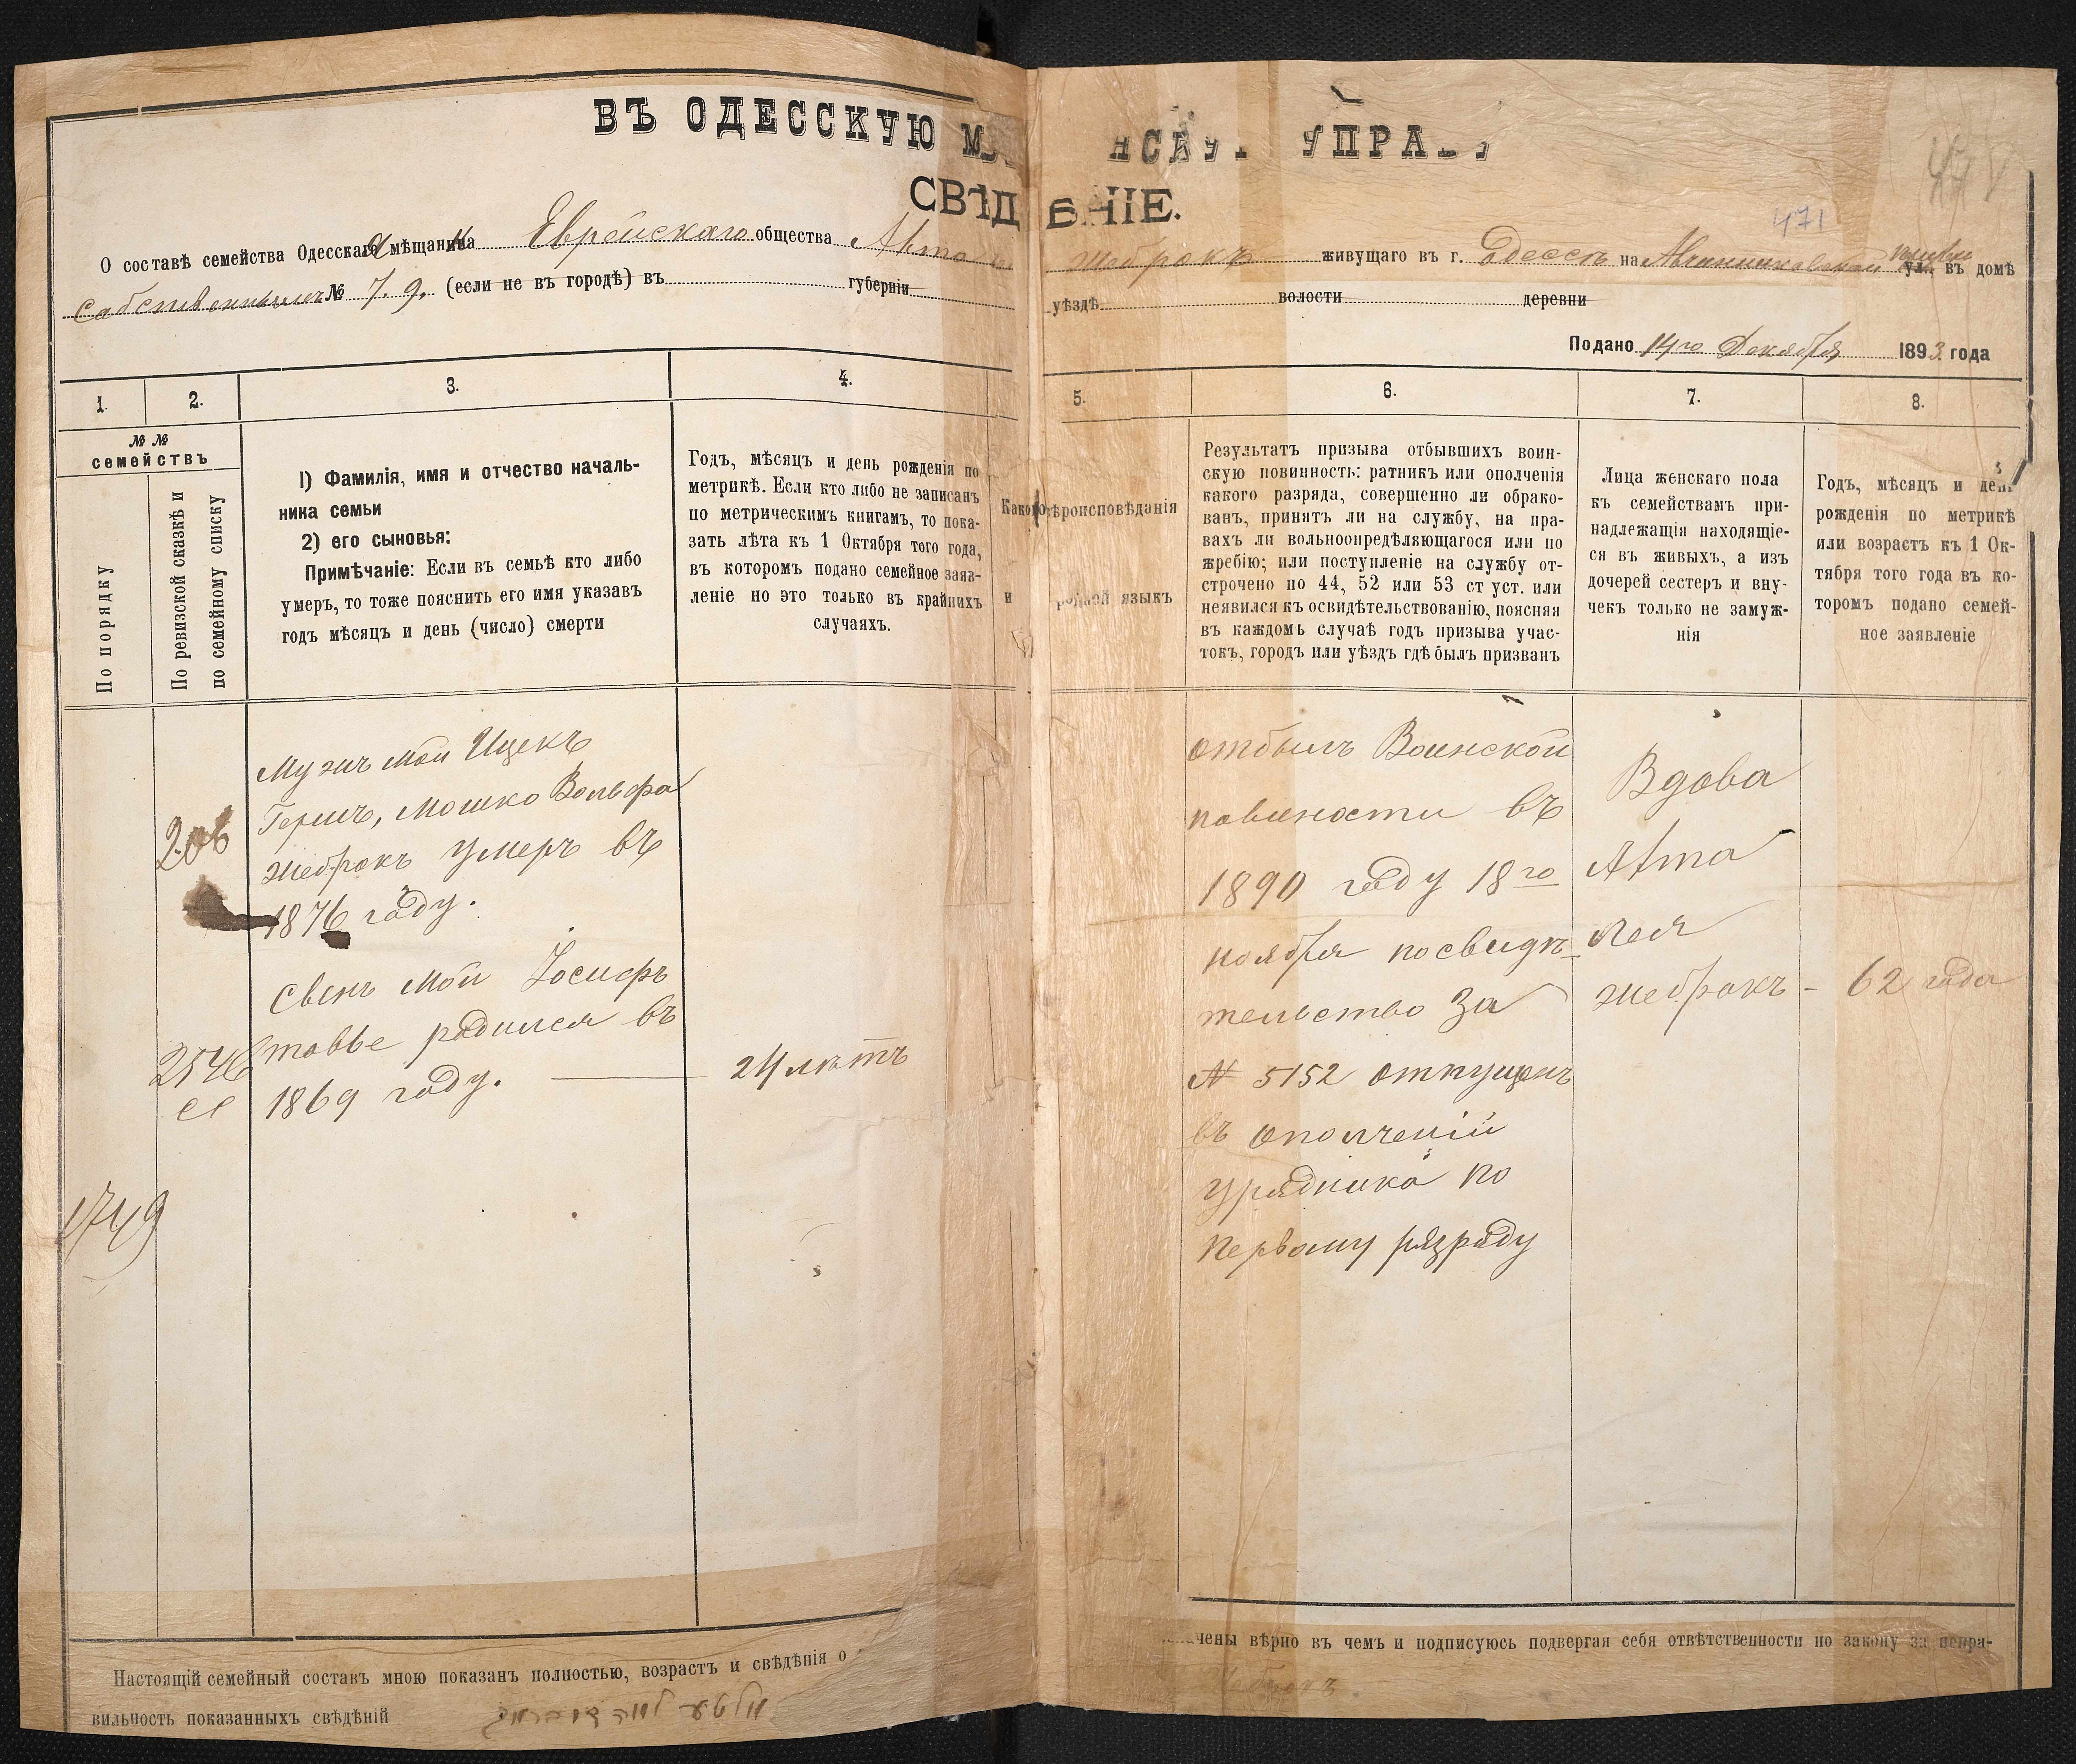 ВЪ ОДЕССКУЮ М НСКУЮ УПРАВУ
СВѢДѢНІЕ.
471
О составѣ семейства Одесскаго мѣщанина Еврейскаго общества Жебракъ живущаго въ г. Одессѣ на ул. въ домѣ
Собственномъ № 7.9. (если не въ городѣ) въ губерніи уѣздѣ волости деревни
Подано 14го Декабря 1893 года
1. 2. 3. 4. 5. 6. 7. 8.
№ №
семействъ
По порядку
По ревизской сказкѣ и
по семейному списку
1) Фамилія, имя и отчество началь-
ника семьи
2) его сыновья:
Примѣчаніе: Если въ семьѣ кто либо
умеръ, то тоже пояснить его имя указавъ
годъ мѣсяцъ и день (число) смерти
Годъ, мѣсяцъ и день рожденія по
метрикѣ. Если кто либо не записанъ
по метрическимъ книгамъ, то пока-
зать лѣта къ 1 Октября того года,
въ которомъ подано семейное заяв-
леніе но это только въ крайнихъ
случаяхъ.
Какого вѣроисповѣданія
и родной языкъ
Результатъ призыва отбывшихъ воин-
скую повинность: ратникъ или ополченія
какого разряда, совершенно ли обрако-
ванъ, принятъ ли на службу, на пра-
вахъ ли вольноопредѣляющагося или по
жребію; или поступленіе на службу от-
строчено по 44, 52 или 53 ст уст. или
неявился къ освидѣтельствованію, поясняя
въ каждомъ случаѣ годъ призыва учас-
токъ, городъ или уѣздъ гдѣ былъ призванъ
Лица женскаго пола
къ семействамъ при-
надлежащія находящіе-
ся въ живыхъ, а изъ
дочерей сестеръ и вну-
чекъ только не замуж-
нія
Годъ, мѣсяцъ и день
рожденія по метрикѣ
или возрастъ къ 1 Ок-
тября того года въ ко-
торомъ подано семей-
ное заявленіе
Мужъ мой Ицекъ
Гершъ, Мошко Вольфа
Жебракъ умеръ въ
1876 году.
Свенъ мой Іосифъ
родился въ
1869 году.
2546
1749
24 лѣтъ
отбылъ Воинской
повиности въ
1890 году 18го
ноября посвидѣ-
тельство За
№ 5152 отпущенъ
въ ополченій
урядника по
первому разряду
Вдова
Лея
Жебракъ - 62 года
Настоящій семейный составъ мною показанъ полностью, возрастъ и свѣдѣнія о чены вѣрно въ чемъ и подписуюсь подвергая себя отвѣтственности по закону за непра-
вильность показанныхъ свѣдѣній